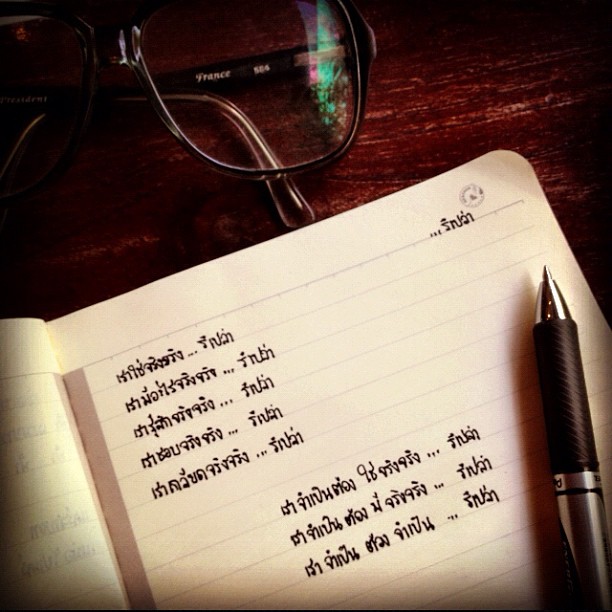 President
France 586
... รึเปล่า
เราใช่จริงจริง ... รึเปล่า
เรามีอะไรจริงจริง ... รึเปล่า
เรารู้สึกจริงจริง ... รึเปล่า
เราชอบจริงจริง ... รึเปล่า
เราเกลียดจริงจริง ... รึเปล่า
เราจำเป็นต้อง ใช้จริงจริง ... รึเปล่า
เราจำเป็น ต้อง มี จริงจริง ... รึเปล่า
เรา จำเป็น ต้อง จำเป็น ... รึเปล่า